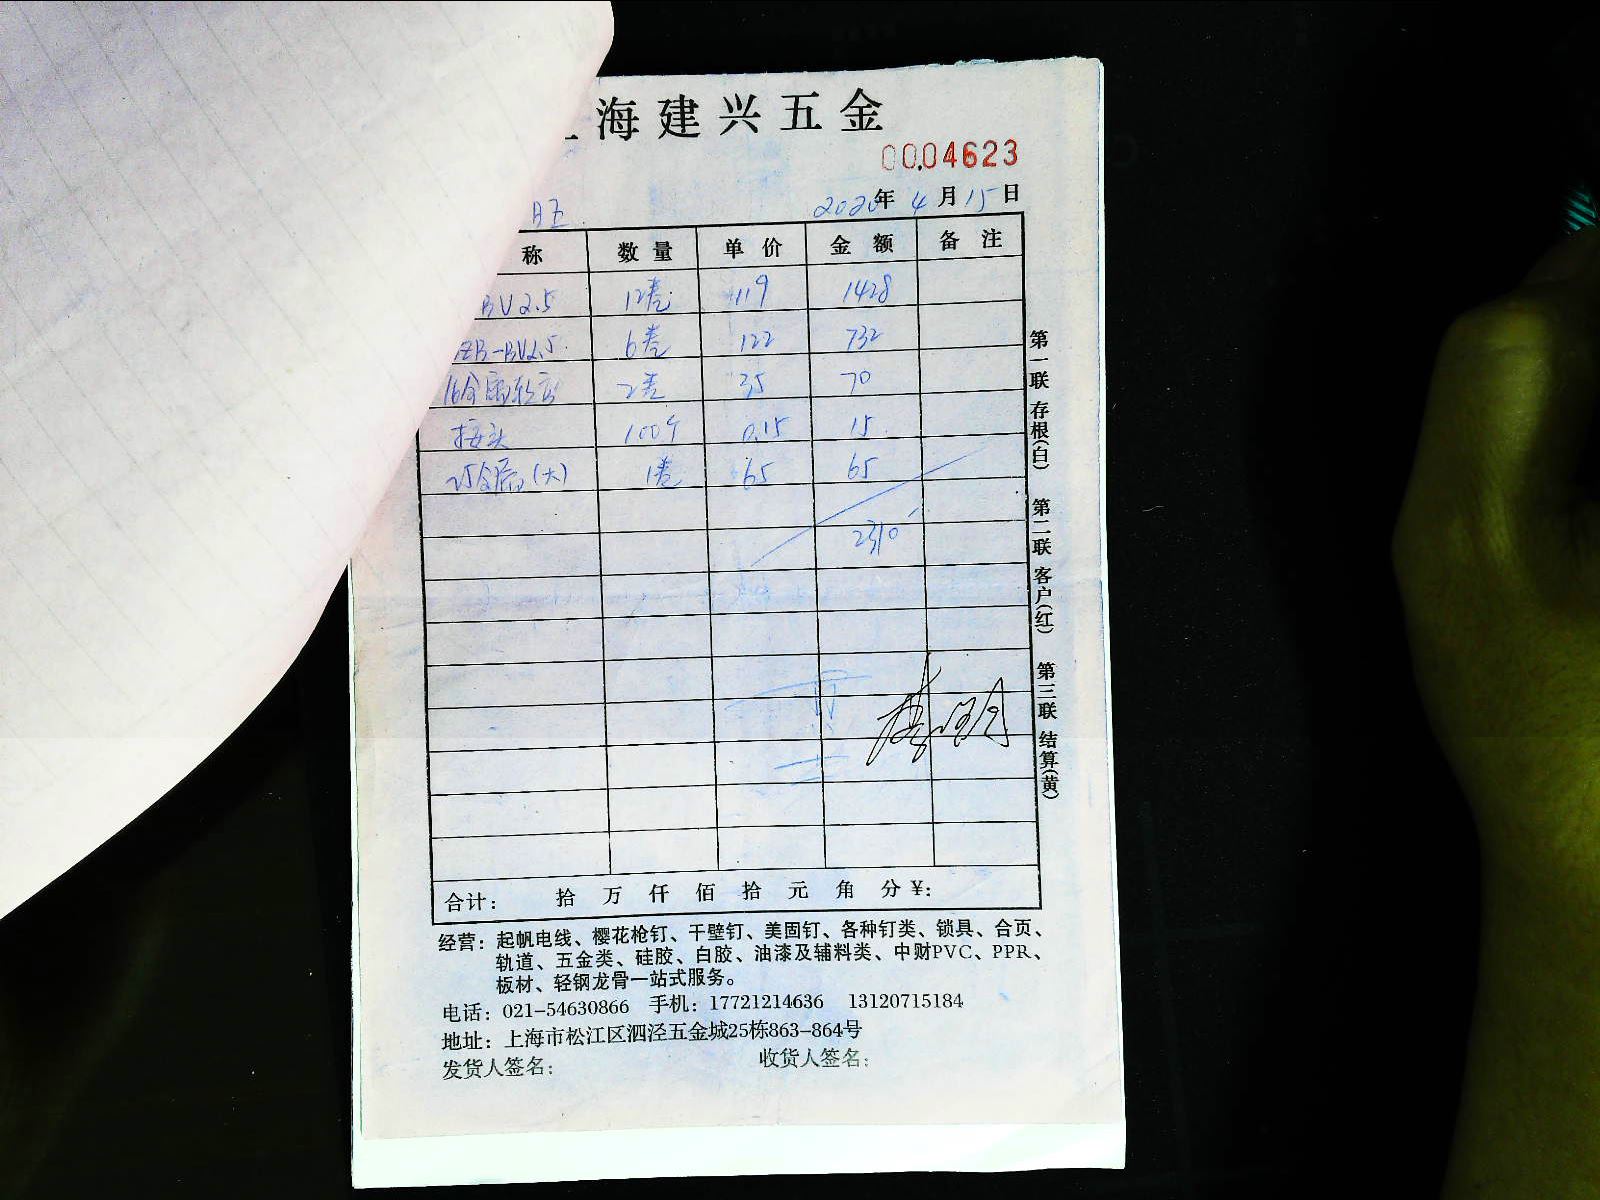 海建兴五金
0004623
旺 2020年4月15日
称 数量 单价 金额 备注
BV2.5 12卷 119 1428
ZB-BV2.5 6卷 122 732
16 2卷 35 70
接头 100个 0.15 15
(大) 1卷 65 65
2310
合计: 拾 万 仟 佰 拾 元 角 分 ¥:
经营: 起帆电线、樱花枪钉、干壁钉、美固钉、各种钉类、锁具、合页、
轨道、五金类、硅胶、白胶、油漆及辅料类、中财PVC、PPR、
板材、轻钢龙骨一站式服务。
电话: 021-54630866 手机: 17721214636 13120715184
地址: 上海市松江区泗泾五金城25栋863-864号
发货人签名: 收货人签名:
第一联 存根(白) 第二联 客户(红) 第三联 结算(黄)